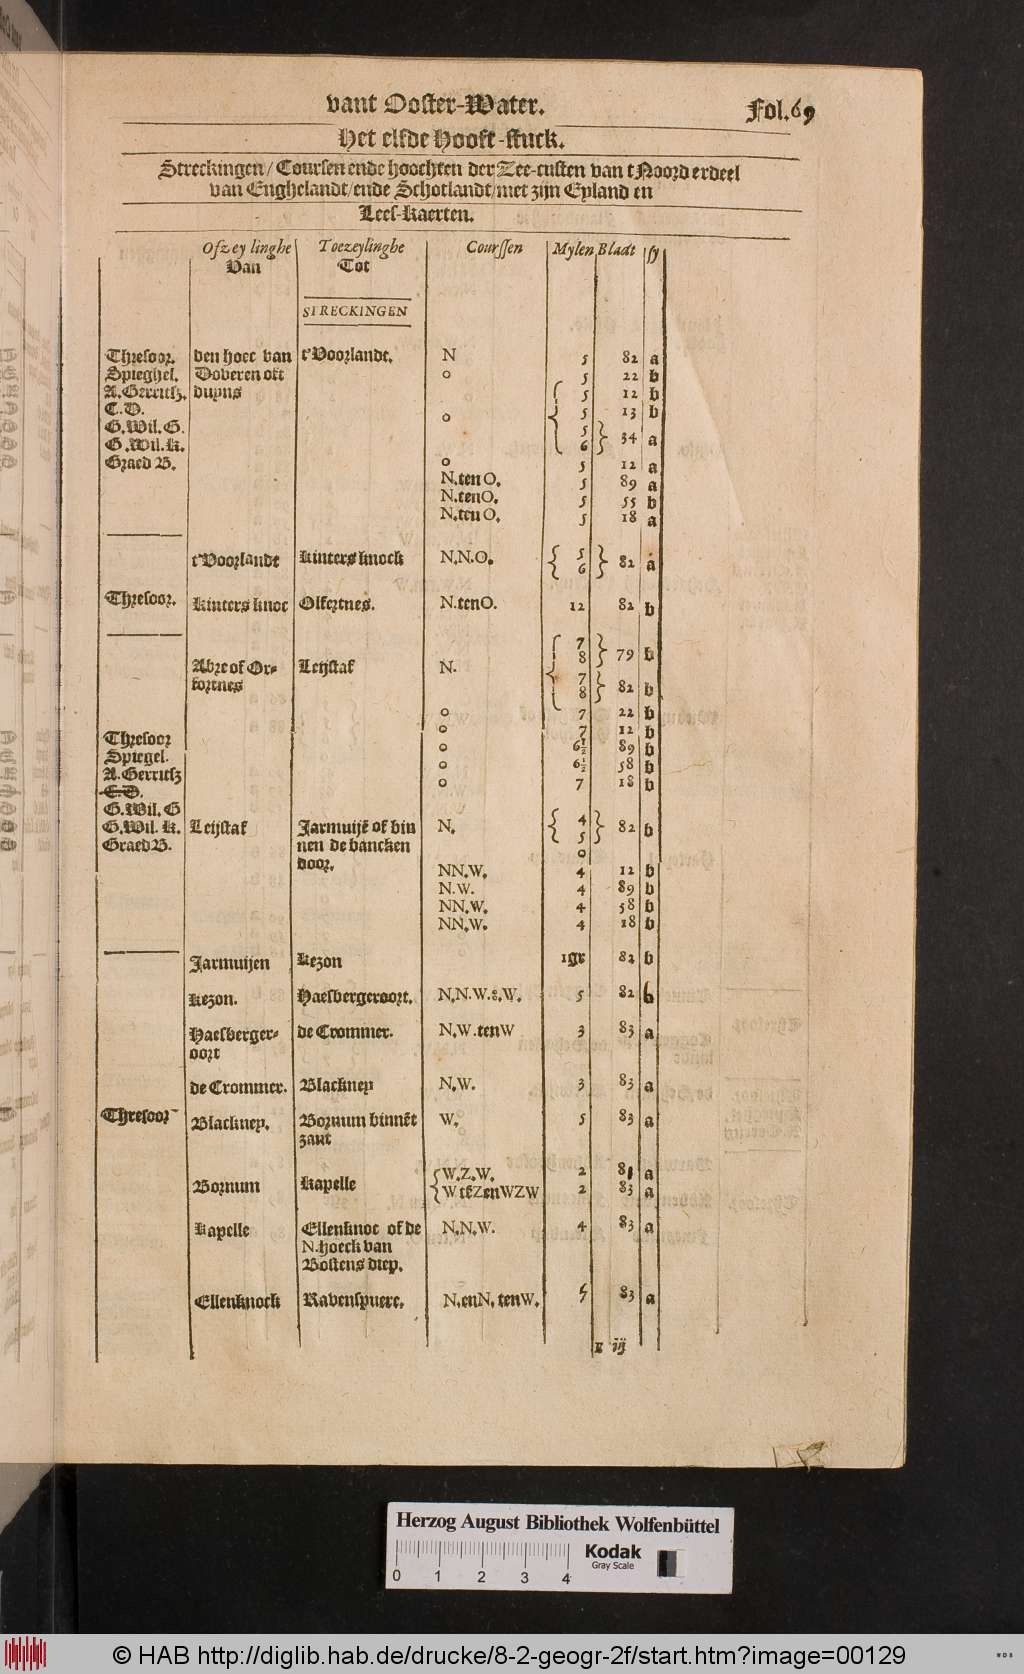 vant Ooster-Water. Fol.69
Het elfde Hooft-stuck.
Streckingen / Coursen ende hoochten der Zee-custen van t Noorderdeel
van Enghelandt/ende Schotlandt/met zijn Eyland en
Lees-kaerten.
Ofzeylinghe Toezeylinghe Courssen Mylen Bladt sy
Van Tot
STRECKINGEN
Thresoor. den hoec van t'Voorlandt. N 5 82 a
Spieghel. Doveren oft o 5 22 b
A.Gerritsz. duyns 5 12 b
C.D. o 5 13 b
G.Wil.G. 5
G.Wil.K. 6 34 a
Graed B. o 5 12 a
N.ten O. 5 89 a
N.tenO. 5 55 b
N.ten O. 5 18 a
t'Voorlandt Kinters knock N.N.O. 5 6 82 a
Thresoor. Kinters knoc Olfertnes. N.tenO. 12 82 b
7 8 79 b
Abre of Or- Leystaf N.
fortnes 7 8 82 b
o 7 22 b
o 7 12 b
Thresoor o 6½ 89 b
Spiegel. o 6½ 58 b
A.Gerritsz o 7 18 b
C.D.
G.Wil.G
G.Wil.K. Leijstaf Jarmuijẽ of bin N. 4 5 82 b
Graed B. nen de bancken o
door. NN.W. 4 12 b
N.W. 4 89 b
NN.W. 4 58 b
NN.W. 4 18 b
Jarmuijen Kezon 1gr 82 b
Kezon. Haesbergeroort. N.N.W.&.W. 5 82 b
Haesberger- de Crommer. N.W.tenW 3 83 a
oort
de Crommer. Blackney N.W. 3 83 a
Thresoor Blackney. Bornum binnẽt W. 5 83 a
zant
Bornum Kapelle W.Z.W. 2 81 a
W tẽZenWZW 2 83 a
Kapelle Ellenknoc of de N.N.W. 4 83 a
N.hoeck van
Bostens diep.
Ellenknock Ravenspuere. N.enN.tenW. 83 a
R iij
Herzog August Bibliothek Wolfenbüttel
0 1 2 3 4
Kodak
Gray Scale
© HAB http://diglib.hab.de/drucke/8-2-geogr-2f/start.htm?image=00129